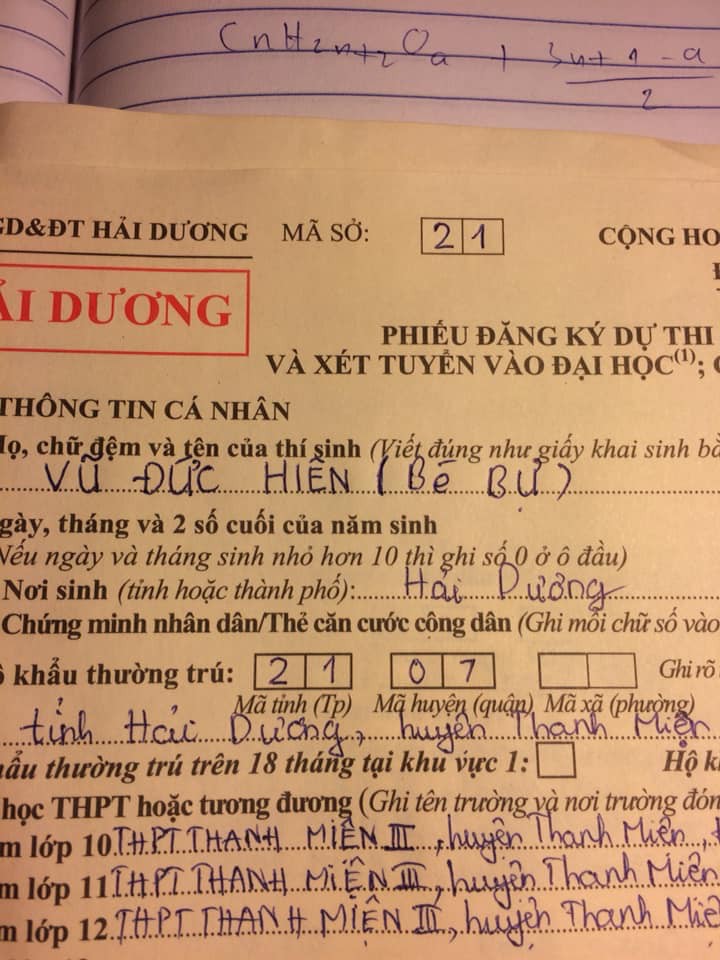 CnH2n+2Oa + 3n+1-a
2
GD&ĐT HẢI DƯƠNG MÃ SỞ: 21 CỘNG HO
ẢI DƯƠNG
PHIẾU ĐĂNG KÝ DỰ THI
VÀ XÉT TUYỂN VÀO ĐẠI HỌC(1);
THÔNG TIN CÁ NHÂN
Họ, chữ đệm và tên của thí sinh (Viết đúng như giấy khai sinh bằ
VŨ ĐỨC HIỀN (Bé Bự)
gày, tháng và 2 số cuối của năm sinh
Nếu ngày và tháng sinh nhỏ hơn 10 thì ghi số 0 ở ô đầu)
Nơi sinh (tỉnh hoặc thành phố): Hải Dương
Chứng minh nhân dân/Thẻ căn cước công dân (Ghi mỗi chữ số vào
ộ khẩu thường trú: 21 07 Ghi rõ
Mã tỉnh (Tp) Mã huyện (quận) Mã xã (phường)
tỉnh Hải Dương, huyện Thanh Miện
hẩu thường trú trên 18 tháng tại khu vực 1: Hộ k
học THPT hoặc tương đương (Ghi tên trường và nơi trường đón
m lớp 10 THPT THANH MIỆN III, huyện Thanh Miện,
m lớp 11 THPT THANH MIỆN III, huyện Thanh Miện
m lớp 12 THPT THANH MIỆN III, huyện Thanh Miệ